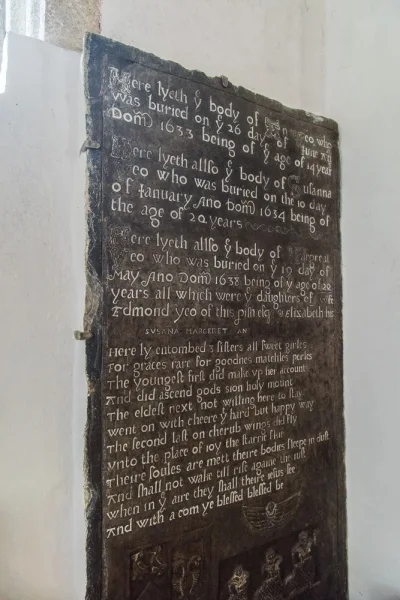 Here lyeth ẏ body of An Yeo who
was buried on ẏ 26 day of June
Dom̃ 1633 being of ẏ age of 14 year
Here lyeth allso ẏ body of Susanna
Yeo who was buried on the 10 day
of January Ano Dom̃ 1634 being of
the age of 20 years
Here lyeth allso ẏ body of
Yeo who was buried on ẏ 19 day of
May Ano Dom̃ 1638 being of ẏ age of 22
years all which were ẏ daughters of
Edmond yeo of this pish esq elisabeth his
SUSANA MARGERET AN
Here ly entombed 3 sisters all sweet girles
For graces rare for goodnes matchles perles
The youngest first did make vp her account
And did ascend gods sion holy mount
The eldest next not willing here to stay
went on with cheere ẏ hard but happy way
The second last on cherub wings did fly
vnto the place of ioy the starrie skie
Theire soules are mett theire bodies sleepe in dust
And shall not wake till rise againe the iust
when in ẏ aire they shall theire iesus see
And with a com ye blessed blessed be